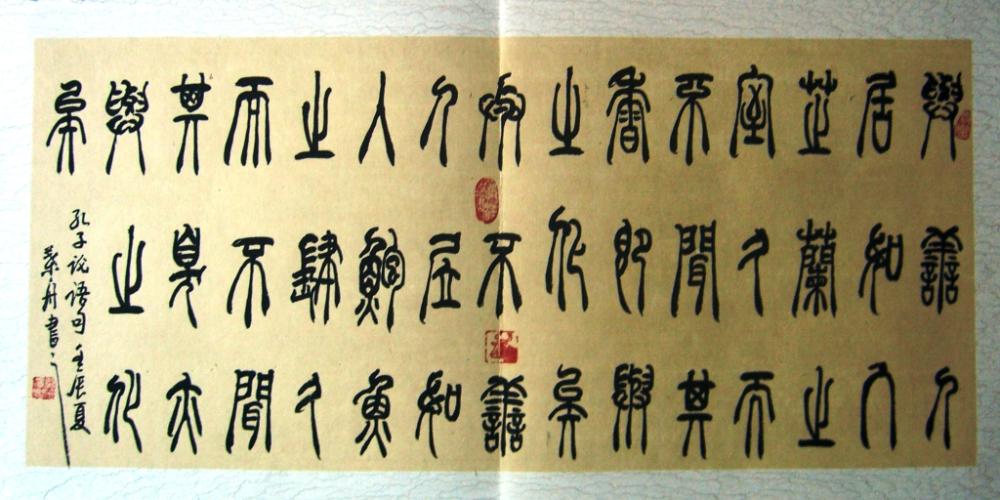 與善人
居如入
芷蘭之
室久而
不聞其
香即與
之化矣
與不善
人居如
入鮑魚
之肆久
而不聞
其臭亦
與之化
矣
孔子语句 壬辰夏
舟書